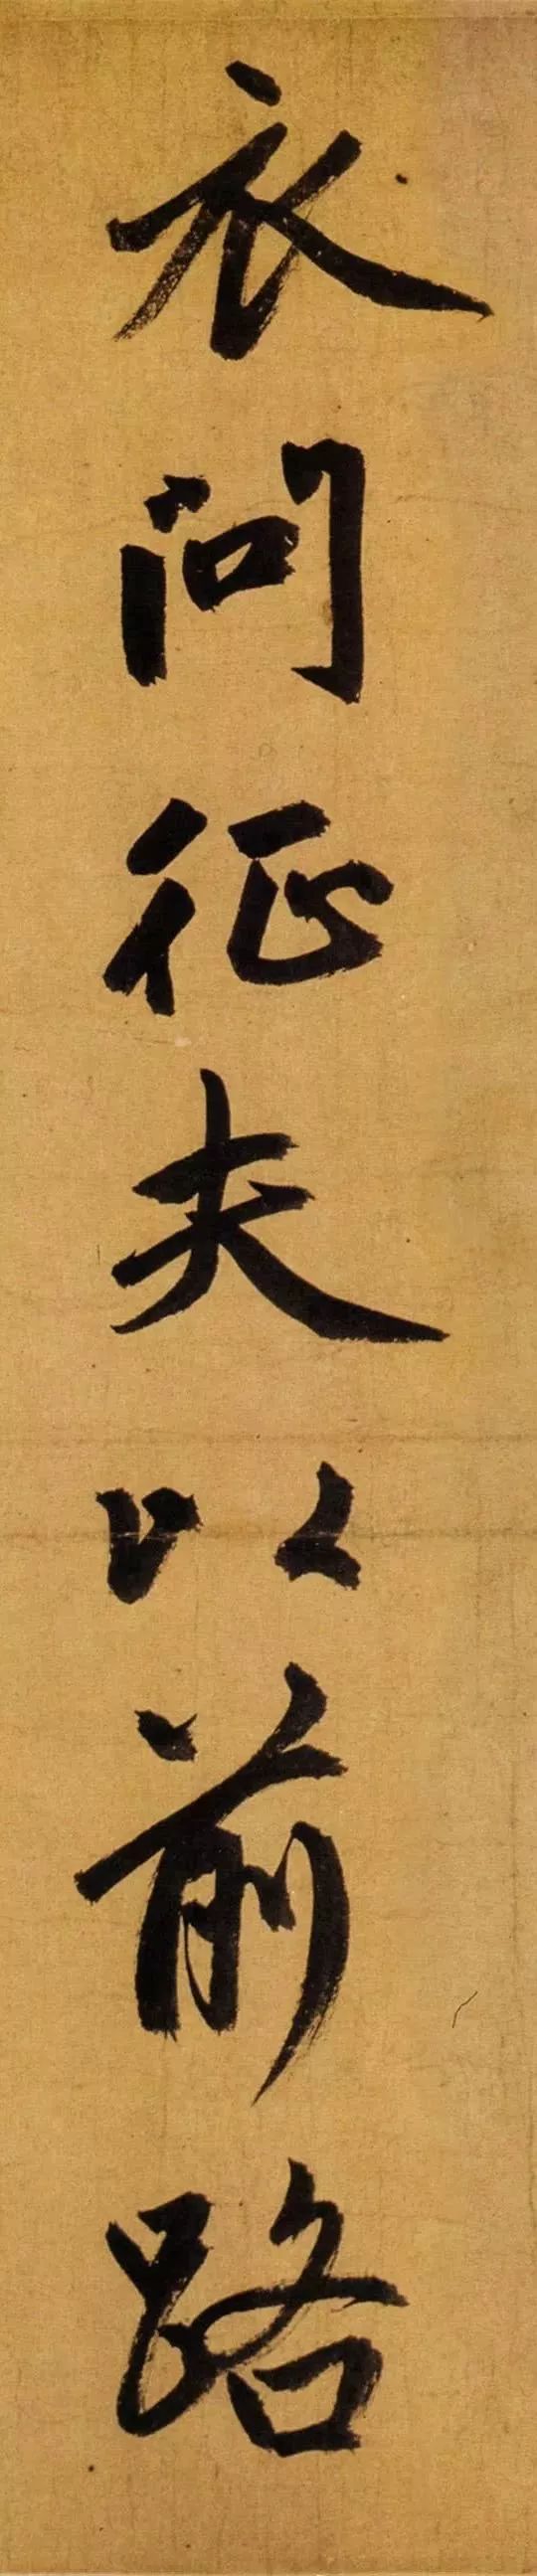 衣问征夫以前路